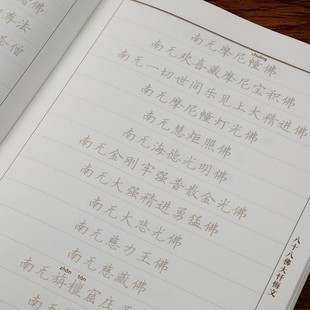 尊法
圣僧
chuáng
南无摩尼幢佛
南无欢喜藏摩尼宝积佛
南无一切世间乐见上大精进佛
南无摩尼幢灯光佛
南无慧炬照佛
南无海德光明佛
南无金刚牢强普散金光佛
南无大强精进勇猛佛
南无大悲光佛
南无慈力王佛
南无慈藏佛
zhān tán
南无栴檀窟庄严
南无
八十八佛大忏悔文